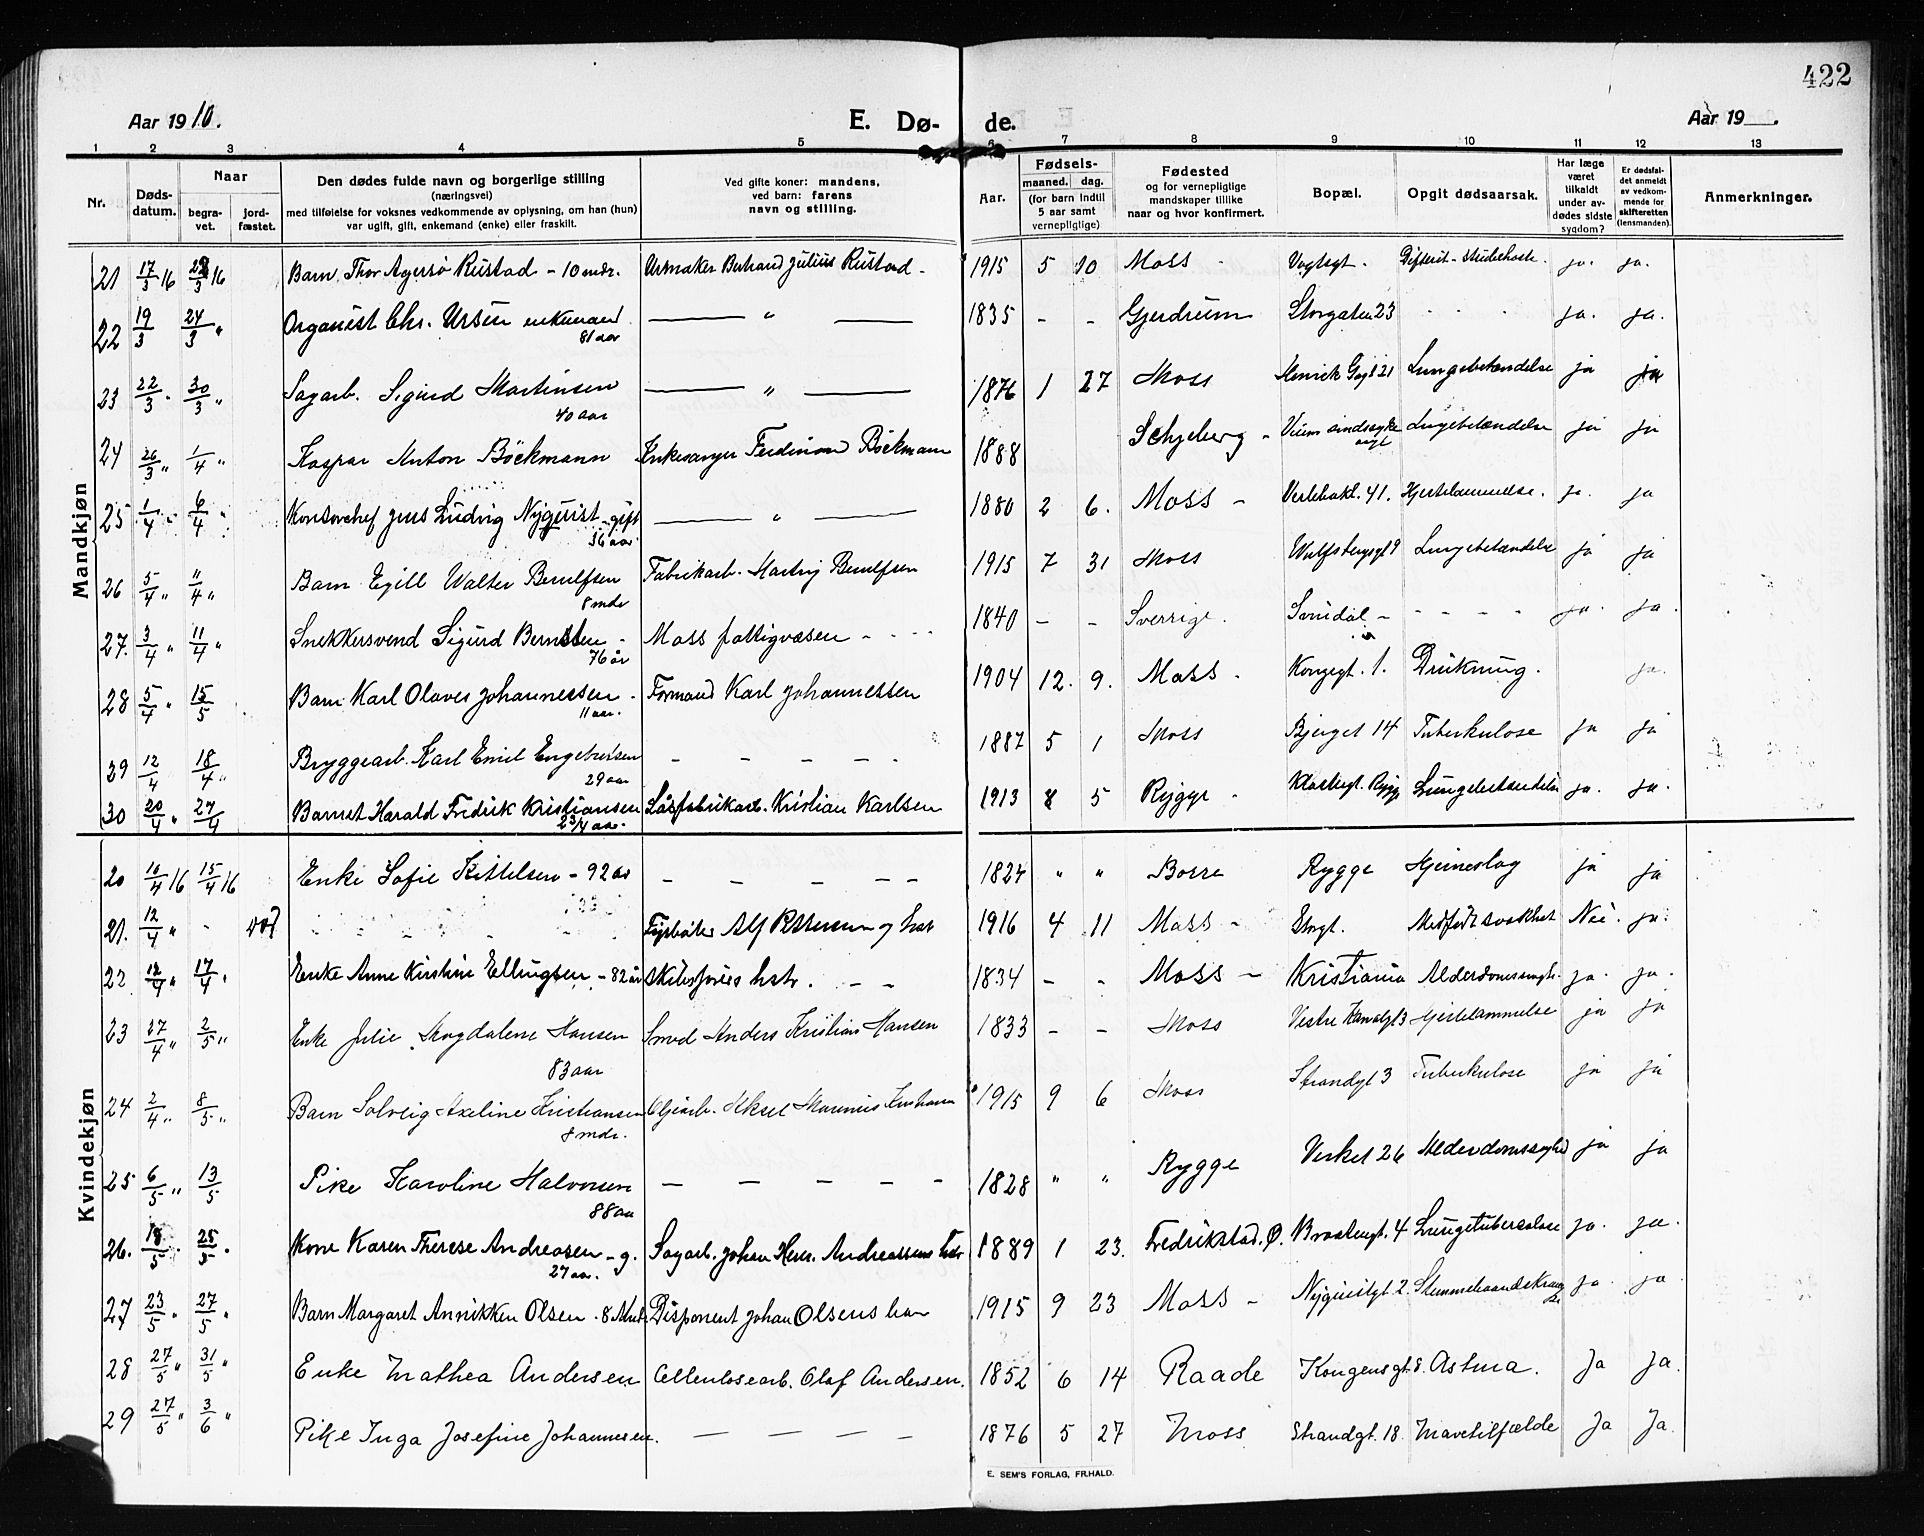 422
Aar 1910. E. Dø- de. Aar 19
1 2 3 4 5 6 7 8 9 10 11 12 13
Nr. Døds-datum. Naar begra-vet. jord-fæstet. Den dødes fulde navn og borgerlige stilling (næringsvei) med tilføielse for voksnes vedkommende av oplysning, om han (hun) var ugift, gift, enkemand (enke) eller fraskilt. Ved gifte koner: mandens, ved barn: farens navn og stilling. Aar. Fødsels- maaned. dag. (for barn indtil 5 aar samt vernepligtige) Fødested og for vernepligtige mandskaper tillike naar og hvor konfirmert. Bopæl. Opgit dødsaarsak. Har læge været tilkaldt under av-dødes sidste sygdom? Er dødsfal-det anmeldt av vedkom-mende for skifteretten (lensmanden). Anmerkninger.
Mandkjøn
21 17/3 16 22/3 16 Barn Thor Agersø Rustad - 10 mdr. Urmaker Bertrand Julius Rustad - 1915 5 10 Moss - Vogtsgt. Difterit - ja. ja.
22 19/3 24/3 " Organist Chr. Ursin enkemand 81 aar " 1835 - - Gjerdrum Storgaten 23 ja. ja.
23 22/3 30/3 " Sagarb. Sigurd Martinsen 40 aar " 1876 1 27 Moss Henrik 21 Lungebetændelse ja ja
24 26/3 " 1/4 " Kaspar Anton Böckmann Ferdinan Böckmann 1888 Schjeberg - Lungebetændelse ja ja
25 1/4 " 6/4 " Kontorchef Jens Ludvig Nyquist - gift 36 aar " 1880 2 6. Moss - Verlebakt. 41. Hjertelammelse. ja. ja
26 5/4 " 11/4 " Barn Egill Walter Berulfsen 8 mdr Fabrikarb. Berulfsen 1915 7 31 Moss Wulfsbergsgt 9 Lungebetændelse ja ja
27. 3/4 " 11/4 " Snekkersvend Sigurd Berntsen - 76 år Moss fattigvæsen - 1840 - - Sverrige. Svindal - ja. ja.
28 5/4 " 15/5 Barn Karl Olaves Johannessen - 11 aar. Formand Karl Johannessen 1904 12. 9. Moss - Kongegt. 1. Drukning. ja.
29 12/4 18/4 " Bryggearb. Karl Emil Engebretsen 29 aar - - - - 1887 5 1 Moss Bjerget 14 Tuberkulose ja ja
30 20/4 " 27/4 Barnet Harald Fredrik Kristiansen 2 3/4 aar. Kristian Karlsen 1913 8 5 Rygge - Rygge Lungebetændelse ja. ja.
Kvindekjøn
20 10/4 16 15/4 16 Enke Sofie Kittelsen - 92 år - - - - - 1824 " " Borre Rygge Hjerneslag ja ja
21. 12/4 " - Fyrbøter Alf Pettersen og hstr 1916 4 11 Moss - Storgt. Medfødt svakhet Nei. ja.
22 12/4 " 17/4 " Enke Anne Kirstine Ellingsen - 82 år hstr. - - 1834 - - Moss - Kristiania ja. ja.
23 27/4 " 2/5 " Enke Julie Magdalene Hansen 83 aar Smed Anders Kristian Hansen 1833 - - Moss Vestre Kanalgt 3 Hjertelammelse ja ja
24 2/4 " 8/5 " Barn Solveig Axeline Kristiansen 8 mdr. Aksel Marinius 1915 9 6 Moss Strandgt 3 Tuberkulose ja ja
25 6/5 " 13/5 Pike Karoline Halvorsen 88 aar - - - - - 1828 " " Rygge Verket 26 ja ja
26. 18/5 " 25/5 " Kone Karen Therese Andreasen - g. 27 aar. Sagarb. Johan Herm. Andreassens hstr 1889 1 23. Fredrikstad. Ø. 4 Lungetuberculose ja. ja.
27 23/5 " 27/5 " Barn Margaret Annikken Olsen - 8 Mndr Disponent Johan Olsens barn 1915 9 23 Moss - Nyquistgt 2 Stemmebaandskrampe ja. ja.
28 27/5 " 31/5 " Enke Mathea Andersen Cellulosearb. Olaf Andersen. 1852 6 14 Raade Kongensgt. 8. Astma. Ja Ja.
29 27/5 " 3/6 " Pike Inga Josefine Johannesen. - - - - 1876 5 27 Moss Strandgt. 18. Mavetilfælde Ja Ja.
E. SEM'S FORLAG, FR.HALD.